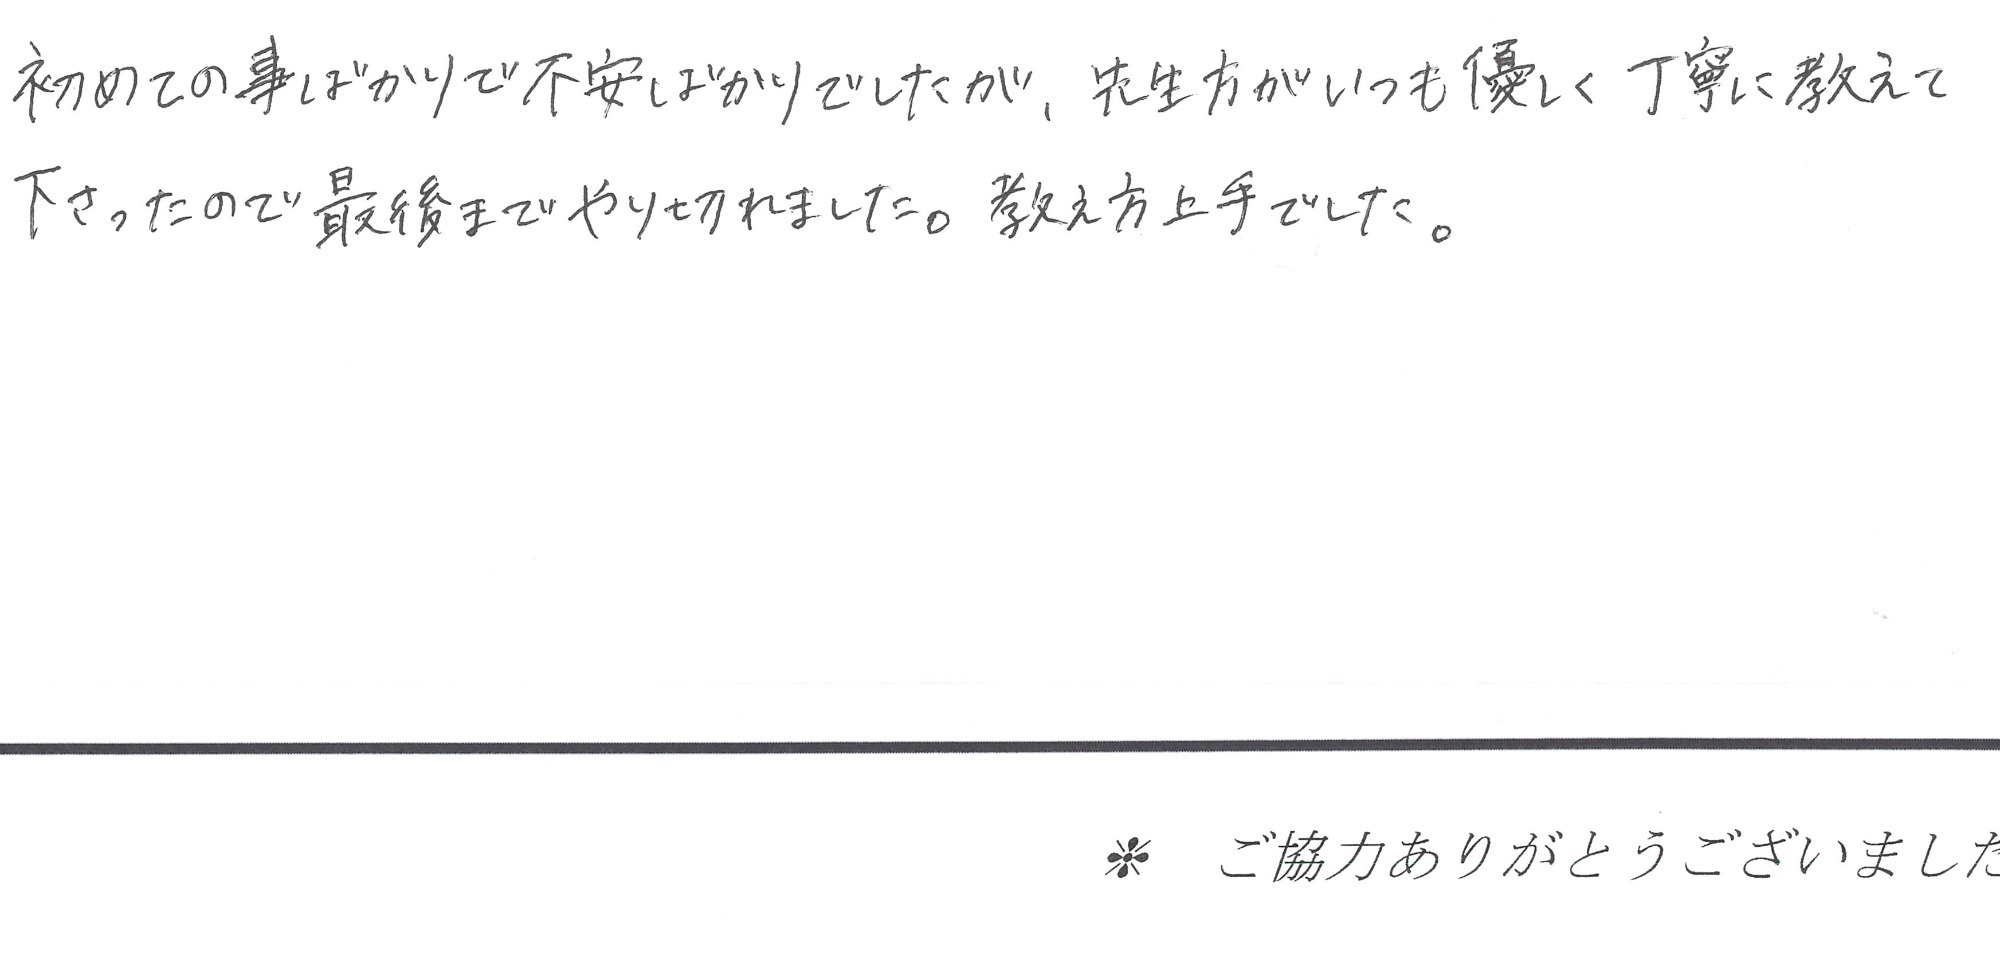 初めての事ばかりで不安ばかりでしたが、先生方がいつも優しく丁寧に教えて
下さったので最後までやり切れました。教え方上手でした。
※ ご協力ありがとうございました